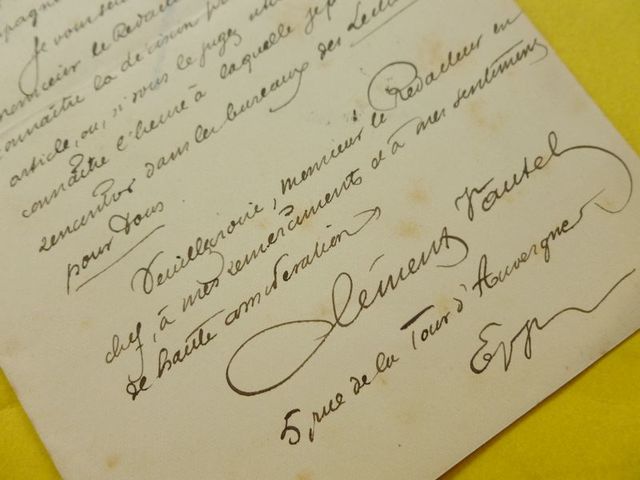 Je vous
monsieur le Rédac
connaître la décision
article, ou, si vous le jugez
connaître l'heure à laquelle je p
rencontrer dans les bureaux des Lectu
pour Tous
Veuillez croire, monsieur le Rédacteur en
chef, à mes remerciements et à mes sentiments
de haute considération
Clément Vautel
5, rue de la Tour d'Auvergne